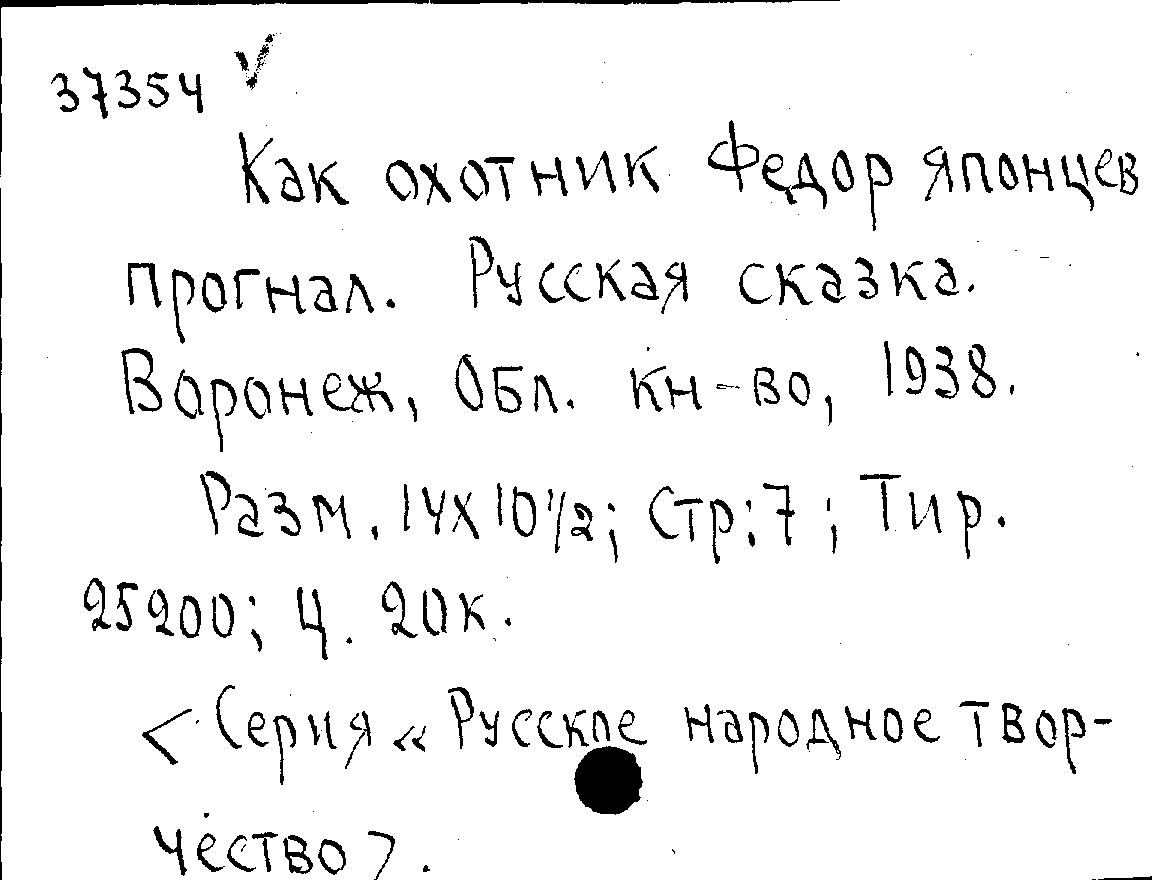 37354 ✓
Как охотник Федор японцев
прогнал. Русская сказка.
Воронеж, Обл. кн-во, 1938.
Разм. 14х10 1/2; Стр: 7; Тир.
25200; Ц. 20к.
<Серия «Русское народное твор-
чество>.